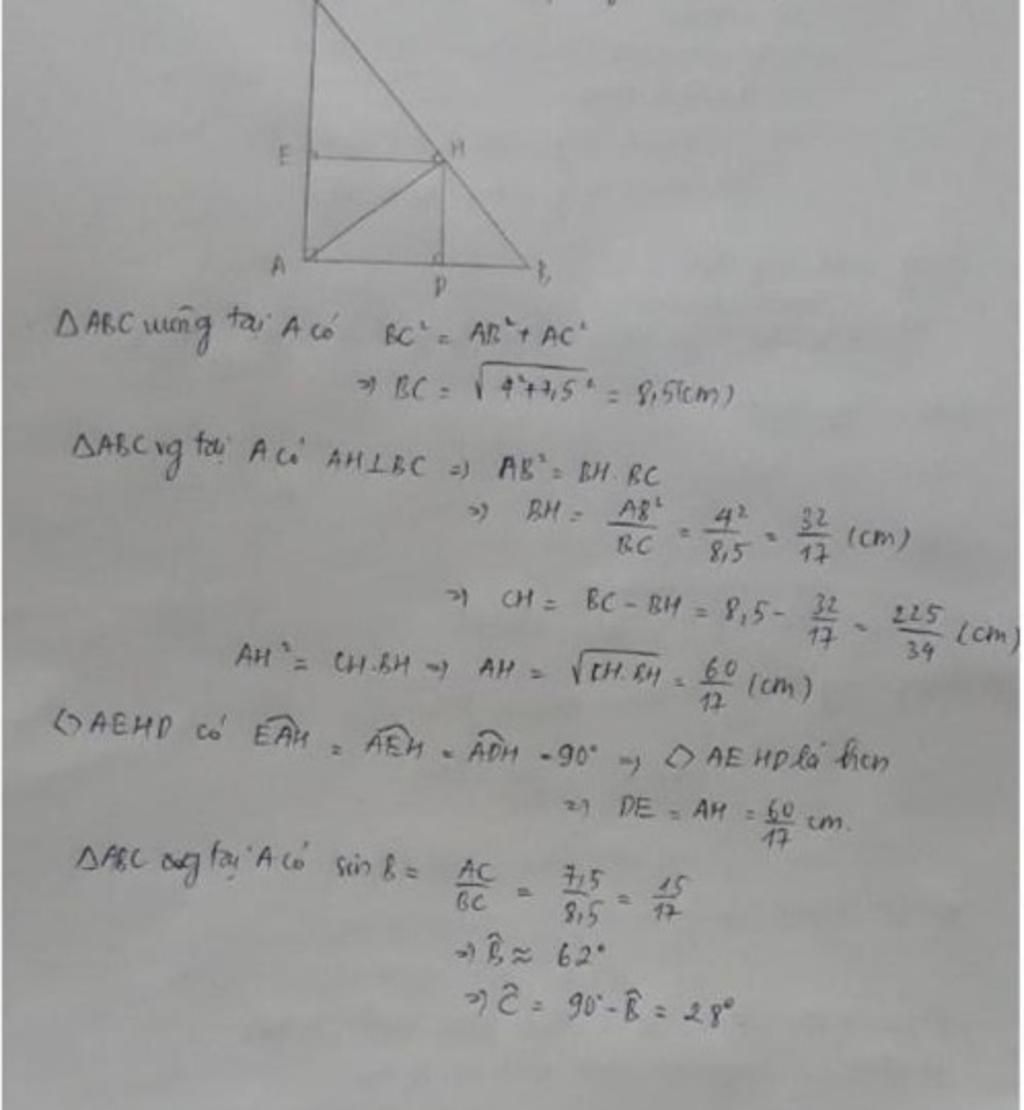 E
H
A
D
B
ΔABC vuông tại A có BC² = AB² + AC²
=> BC = √4²+7,5² = 8,5(cm)
ΔABC vg tại A có AH⊥BC => AB² = BH.BC
=> BH = AB²/BC = 4²/8,5 = 32/17 (cm)
=> CH = BC - BH = 8,5 - 32/17 = 225/34 (cm)
AH² = CH.BH => AH = √CH.BH = 60/17 (cm)
◇AEHD có EAH = AEH = ADH = 90° => ◇AEHD là hcn
=> DE = AH = 60/17 cm.
ΔABC vg tại A có sin B = AC/BC = 7,5/8,5 = 15/17
=> B̂ ≈ 62°
=> Ĉ = 90° - B̂ = 28°